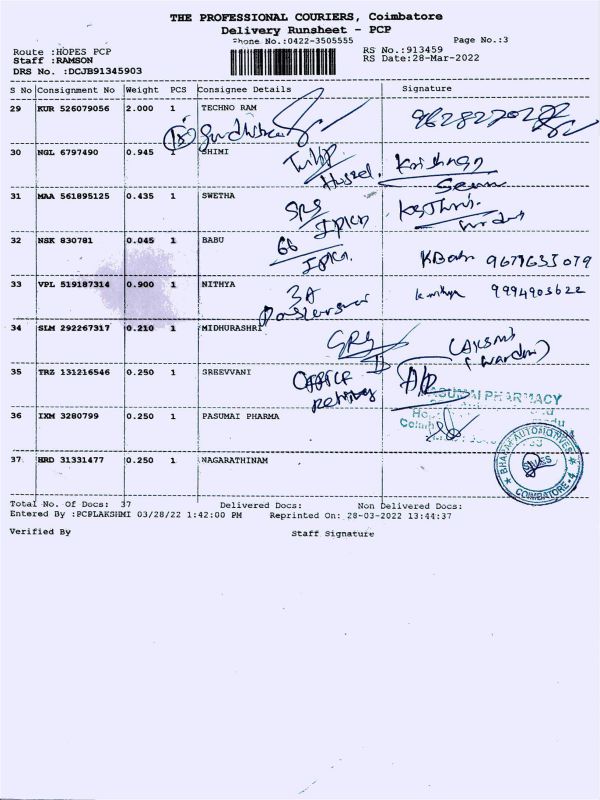 THE PROFESSIONAL COURIERS, Coimbatore
Delivery Runsheet - PCP
Phone No.:0422-3505555
Page No.:3
Route :HOPES PCP
RS No.:913459
Staff :RAMSON
RS Date:28-Mar-2022
DRS No. :DCJB91345903
S No Consignment No Weight PCS Consignee Details Signature
29 KUR 526079056 2.000 1 TECHNO RAM
30 NGL 6797490 0.945 1 SHIMI
Hostel. Krishnan
31 MAA 561895125 0.435 1 SWETHA
SRS
32 NSK 830781 0.045 1 BABU
KBabu 9677633079
33 VPL 519187314 0.900 1 NITHYA
3A 9994903622
34 SLM 292267317 0.210 1 MIDHURASHRI
35 TRZ 131216546 0.250 1 SREEVVANI
OFFICE
PASUMAI PHARMACY
36 IXM 3280799 0.250 1 PASUMAI PHARMA
37 HRD 31331477 0.250 1 NAGARATHINAM
BHARAT AUTOMOTIVES
COIMBATORE-4
Total No. Of Docs: 37 Delivered Docs: Non Delivered Docs:
Entered By :PCPLAKSHMI 03/28/22 1:42:00 PM Reprinted On: 28-03-2022 13:44:37
Verified By Staff Signature